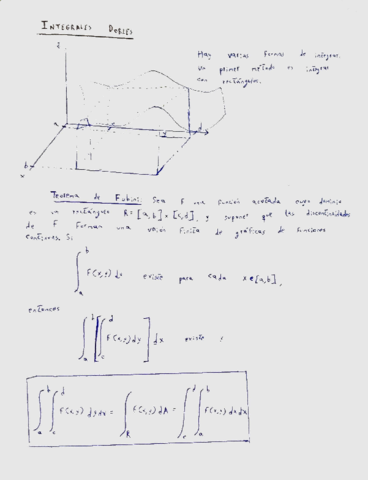 INTEGRALES DOBLES
z
Hay varias formas de integrar.
Un primer método es integrar
con rectángulos.
a
d
b
Teorema de Fubini: Sea F una función acotada cuyo dominio
es un rectángulo R = [a,b] x [c,d], y suponer que las discontinuidades
de F forman una unión finita de gráficas de funciones
continuas. Si
∫_a^b F(x,y) dx existe para cada x∈[a,b],
entonces
∫_a^b [∫_c^d F(x,y) dy] dx existe y
∫_a^b ∫_c^d F(x,y) dy dx = ∫_R F(x,y) dA = ∫_c^d ∫_a^b F(x,y) dx dx